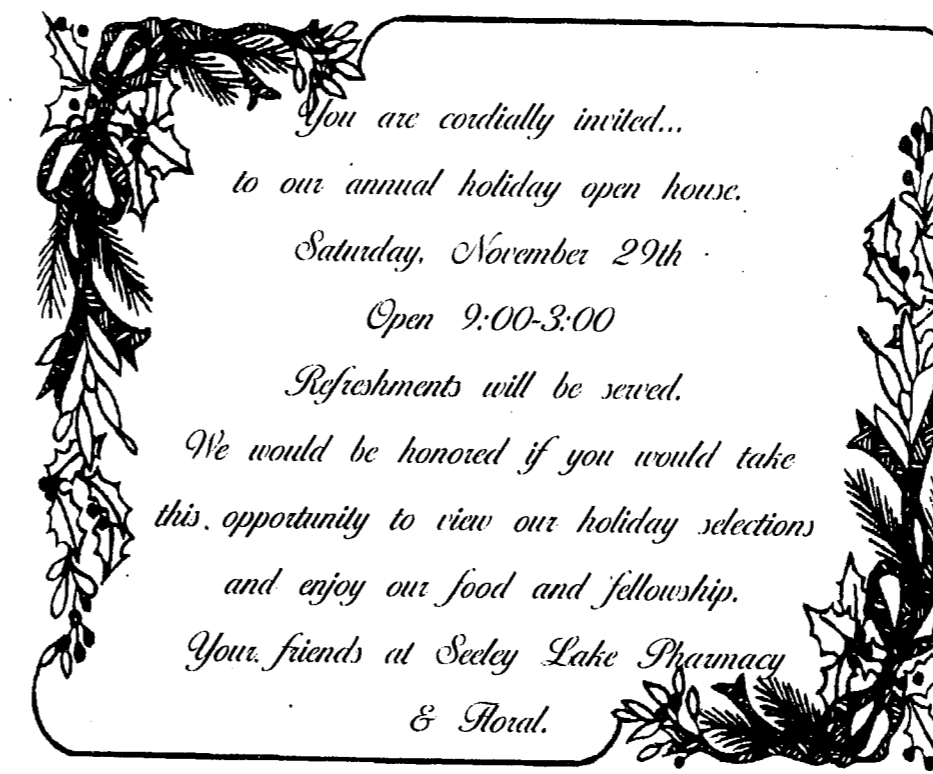 You are cordially invited...
to our annual holiday open house.
Saturday, November 29th
Open 9:00-3:00
Refreshments will be served.
We would be honored if you would take
this opportunity to view our holiday selections
and enjoy our food and fellowship.
Your friends at Seeley Lake Pharmacy
& Floral.